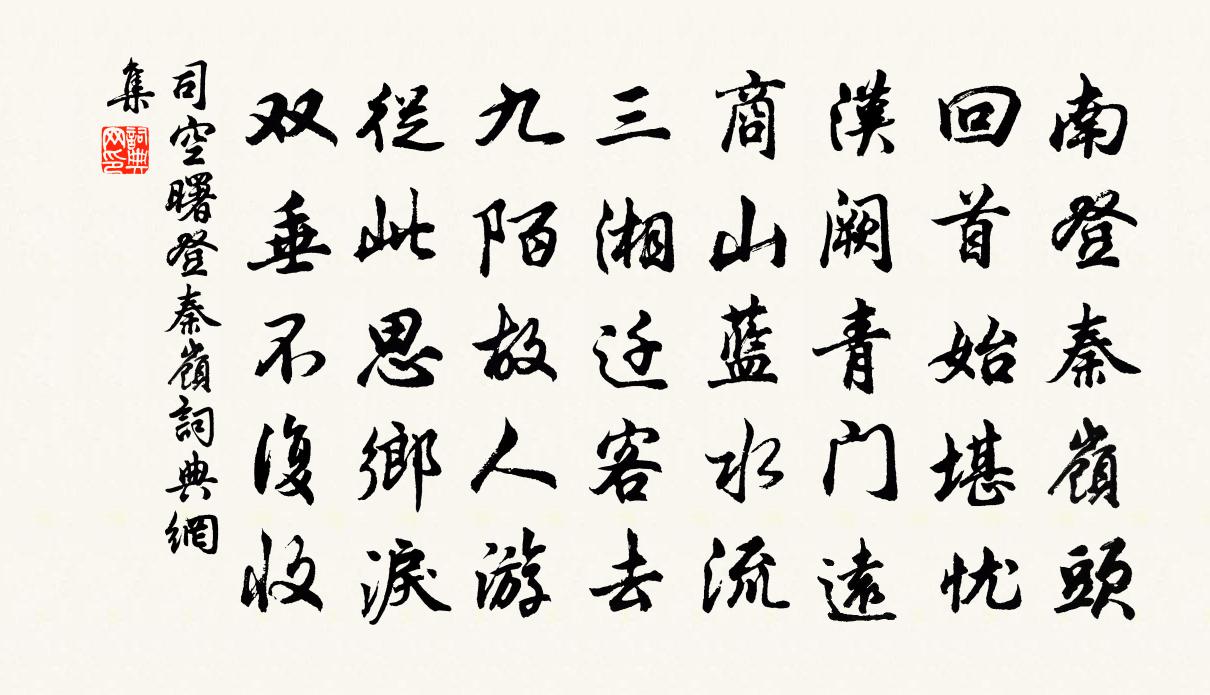 南登秦嶺頭
回首始堪忧
漢闕青门遠
商山藍水流
三湘迁客去
九陌故人游
從此思鄉淚
双垂不復收
司空曙登秦嶺詞典網
集
詞典
网印